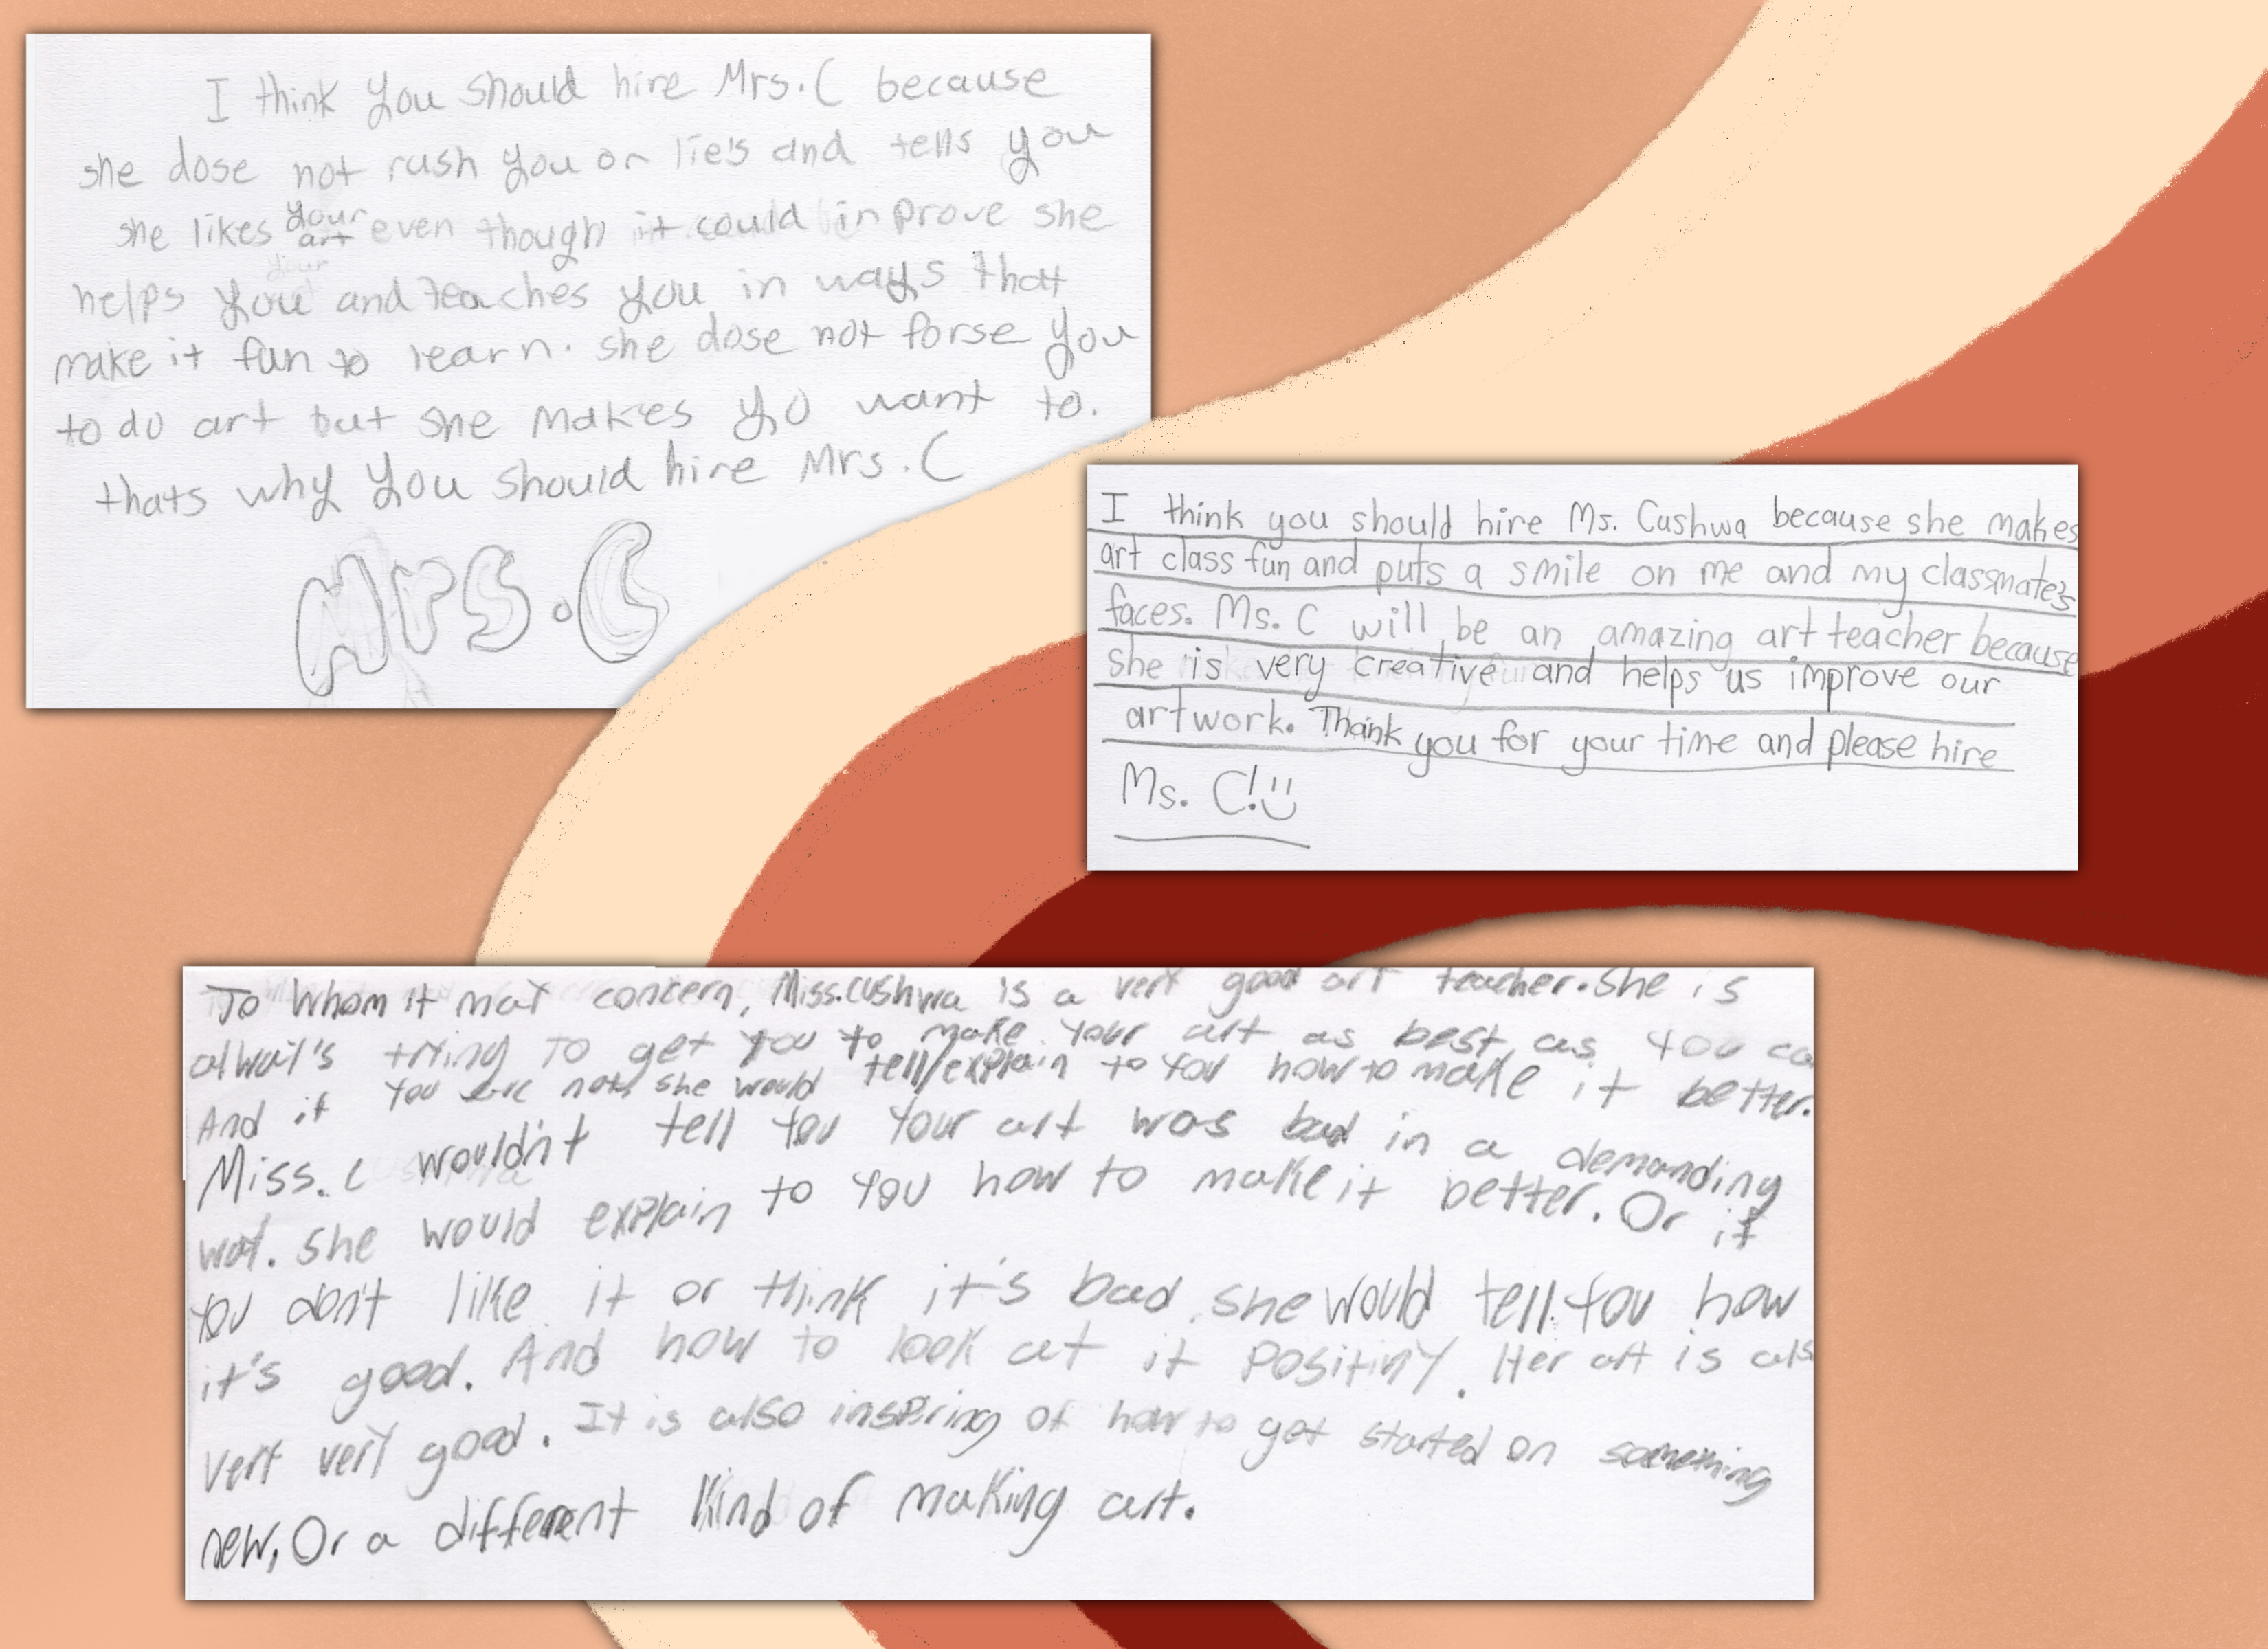 I think you should hire Mrs. C because
she dose not rush you or lie's and tells you
she likes your art even though it could inprove she
helps you and teaches you in ways that
make it fun to learn. she dose not forse you
to do art but she makes yo want to.
thats why you should hire Mrs. C
Mrs. C
I think you should hire Ms. Cushwa because she makes
art class fun and puts a smile on me and my classmate's
faces. Ms. C will be an amazing art teacher because
she is very creative and helps us improve our
artwork. Thank you for your time and please hire
Ms. C!
To Whom it may concern, Miss.Cushwa is a very good art teacher. She is
alway's trying to get you to make your art as best as you ca
And if you are not, she would tell/explain to you how to make it better.
Miss. C wouldn't tell you your art was bad in a demanding
way. She would explain to you how to make it better. Or if
you don't like it or think it's bad she would tell you how
it's good. And how to look at it Positivly. Her art is als
very very good. It is also inspiring of how to get started on something
new, Or a different kind of making art.